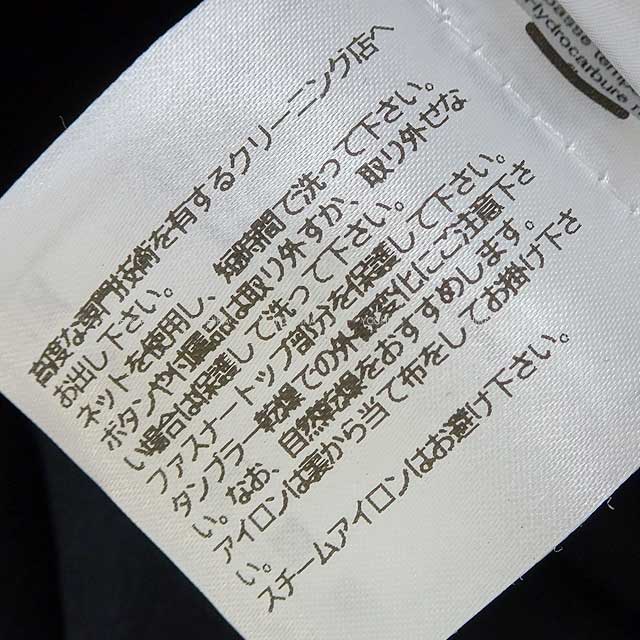 高度な専門技術を有するクリーニング店へ
お出し下さい。
ネットを使用し、短時間で洗って下さい。
ボタンや付属品は取り外すか、取り外せな
い場合は保護して洗って下さい。
ファスナートップ部分を保護して下さい。
タンブラー乾燥での外観変化にご注意下さ
い。なお、自然乾燥をおすすめします。
アイロンは裏から当て布をしてお掛け下さ
い。
スチームアイロンはお避け下さい。
Hydrocarbure